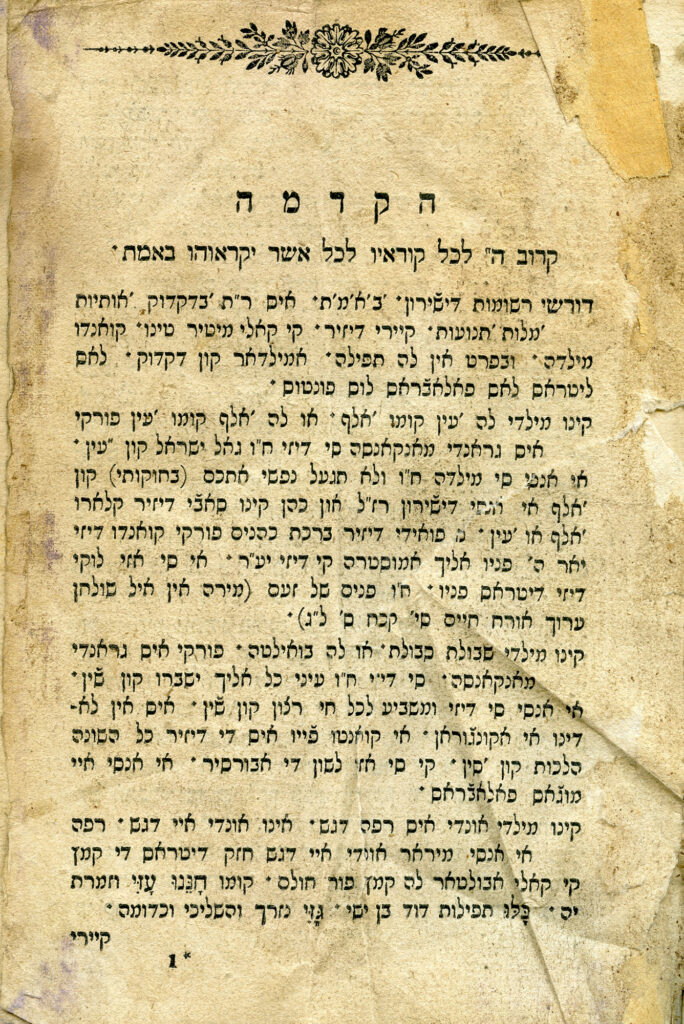 הקדמה
קרוב ה״ לכל קוראיו לכל אשר יקראוהו באמת ·
דורשי רשומות דישֿירון · ׳ב׳א׳מ׳ת · אים ר״ת ׳בדקדוק, ׳אותיות
׳מלות ׳תנועות · קיירי דיזיר · קי קאלי מיטיר טינו · קואנדו
מילדה · ובפרט אין לה תפילה · אמילדאר קון דקדוק · לאס
ליטראס לאס פאלאבֿראס לוס פונטוס ·
קינו מילדי לה ׳עין קומו ׳אלף · או לה ׳אלף קומו ׳עין פורקי
אים גראנדי מאנקאנסה סי דיזי ח״ו גאל ישראל קון ״עין ·
אי אנסי סי מילדה ח״ו ולא תגעל נפשי אתכם (בחוקותי) קון
׳אלף אי דישֿירון רז״ל און כהן קינו סאבֿי דיזיר קלארו
׳אלף או ׳עין · פואידי דיזיר ברכת כהנים פורקי קואנדו דיזי
יאר ה׳ פניו אליך אמוסטרה קי דיזי יע״ר · אי סי אזי לוקי
דיזי דיטראס פניו · ח״ו פנים של זעם (מירה אין איל שולחן
ערוך אורח חיים סי׳ קכח ס׳ ל״ג) ·
קינו מילדי שבולת סבולת · או לה בואילטה · פורקי אים גראנדי
מאנקאנסה · סי דיזי ח״ו עיני כל אליך ישברו קון שֿין ·
אי אנסי סי דיזי ומשביע לכל חי רצון קון שֿין · אים אין לא־
דינו אי אקונגֿוראן · אי קואנטו פֿייו אים די דיזיר כל השונה
הלכות קון ׳סין · קי סי אזי לשון די אבורסיר · אי אנסי איי
מוגֿאס פאלאבֿראס ·
קינו מילדי אונדי אים רפה דגש · אינו אונדי איי דגש · רפה
אי אנסי מיראר אונדי איי דגש חזק דיטראס די קמץ
קי קאלי אבולטאר לה קמץ פור חולם · קומו חָנֵּנוּ עָזִּי וזמרת
יה · כָּלּוּ תפילות דוד בן ישי · גָּזִּי נזרך והשליכי וכדומה ·
קיירי
1*